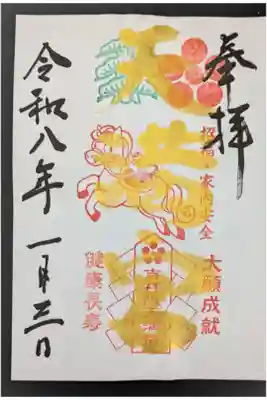 奉拝
招福 家内安全
大願成就
天
健康長寿
令和八年 一月三日